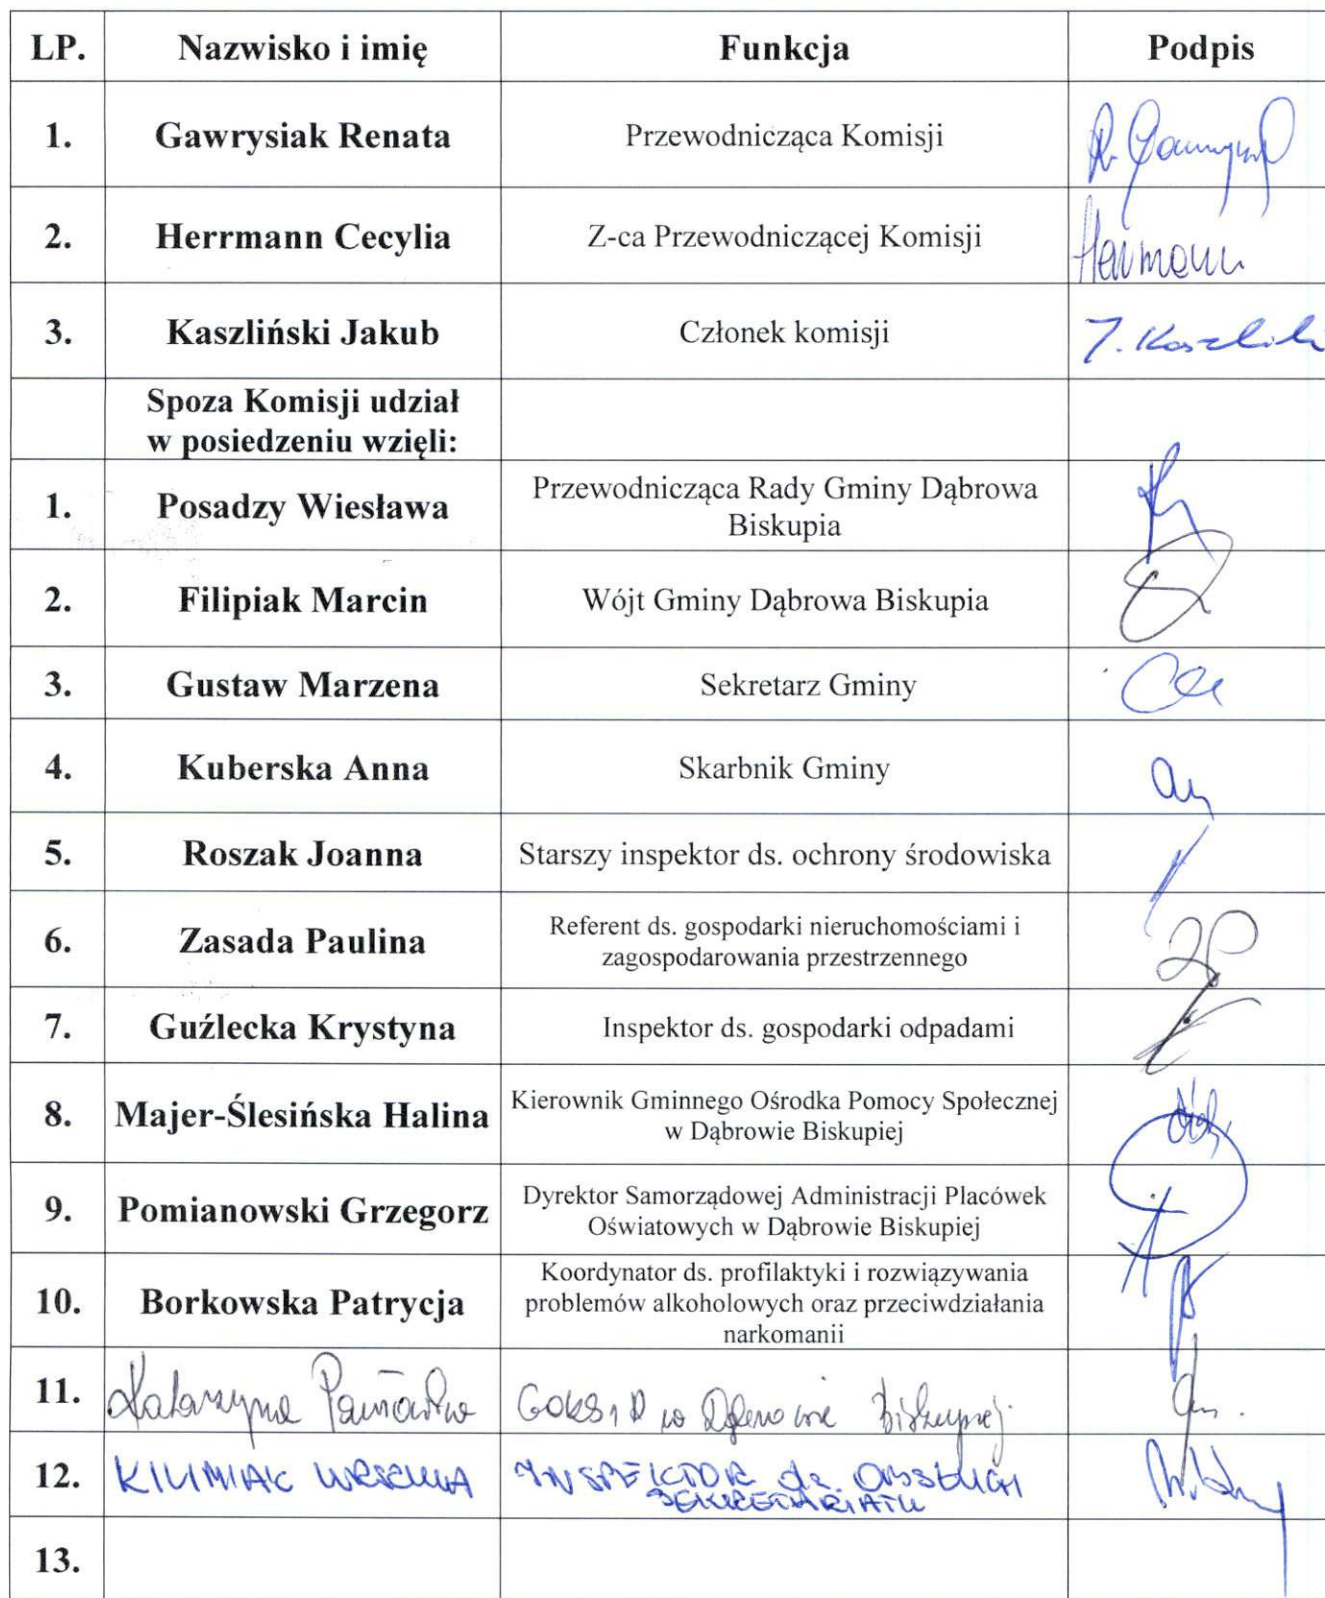 LP. Nazwisko i imię Funkcja Podpis
1. Gawrysiak Renata Przewodnicząca Komisji
2. Herrmann Cecylia Z-ca Przewodniczącej Komisji Herrmann
3. Kaszliński Jakub Członek komisji
Spoza Komisji udział
w posiedzeniu wzięli:
1. Posadzy Wiesława Przewodnicząca Rady Gminy Dąbrowa
Biskupia
2. Filipiak Marcin Wójt Gminy Dąbrowa Biskupia
3. Gustaw Marzena Sekretarz Gminy
4. Kuberska Anna Skarbnik Gminy
5. Roszak Joanna Starszy inspektor ds. ochrony środowiska
6. Zasada Paulina Referent ds. gospodarki nieruchomościami i
zagospodarowania przestrzennego
7. Guźlecka Krystyna Inspektor ds. gospodarki odpadami
8. Majer-Ślesińska Halina Kierownik Gminnego Ośrodka Pomocy Społecznej
w Dąbrowie Biskupiej
9. Pomianowski Grzegorz Dyrektor Samorządowej Administracji Placówek
Oświatowych w Dąbrowie Biskupiej
10. Borkowska Patrycja Koordynator ds. profilaktyki i rozwiązywania
problemów alkoholowych oraz przeciwdziałania
narkomanii
11. Katarzyna w Dąbrowie Biskupiej
12. KILIMIAK URSZULA INSPEKTOR ds. OBSŁUGI
SEKRETARIATU
13.